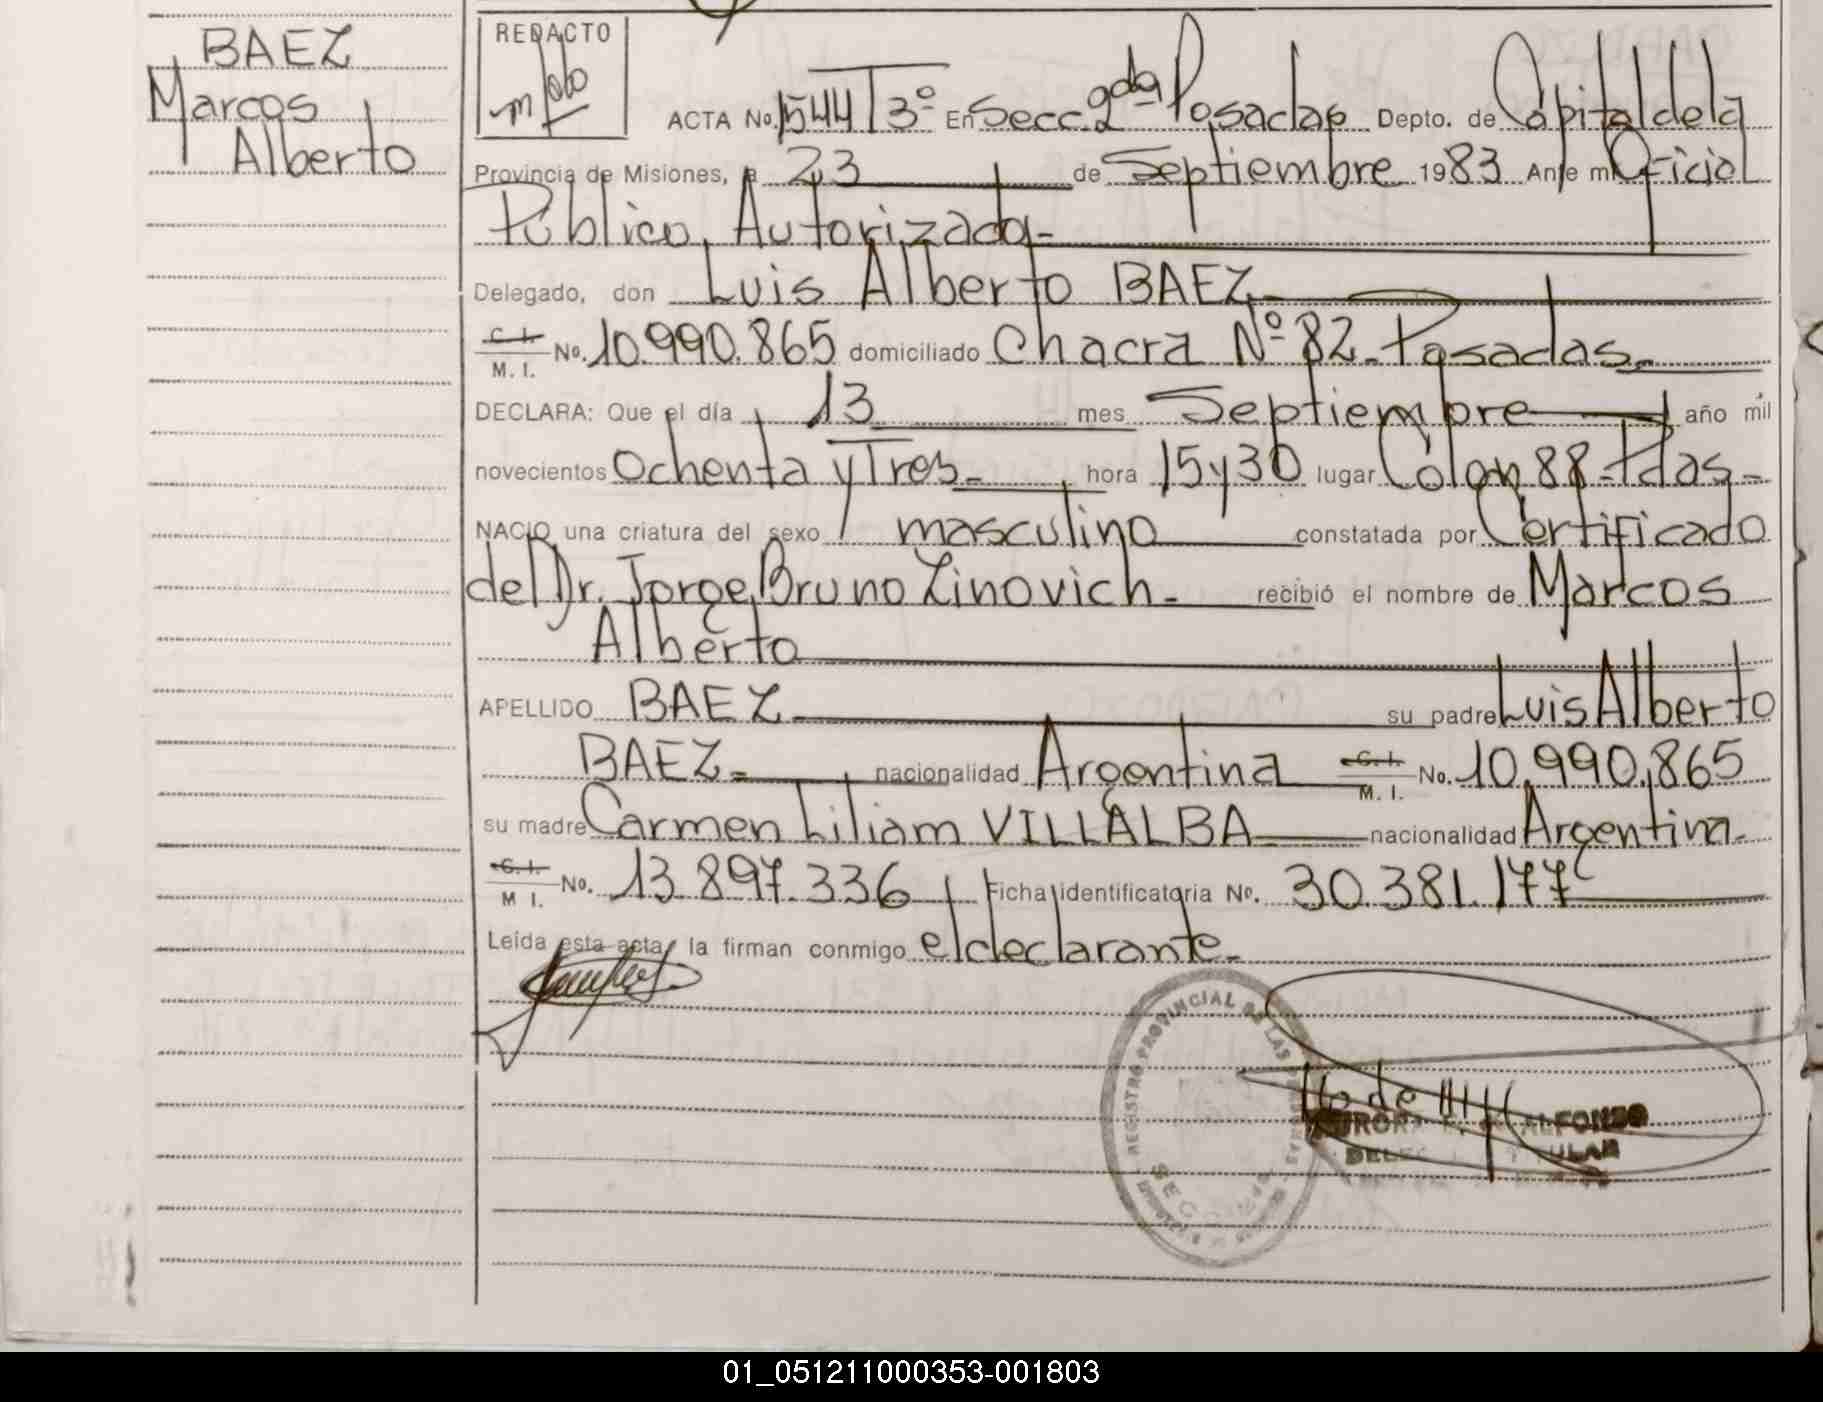 BAEZ
Marcos
Alberto
REDACTO
ACTA No. 1544 T 3º En Secc. 2da Posadas Depto. de Capital de la
Provincia de Misiones, a 23 de Septiembre 1983 Ante mi Oficial
Público, Autorizada-
Delegado, don Luis Alberto BAEZ-
C. I. M. I. No. 10.990.865 domiciliado Chacra Nº 82- Posadas-
DECLARA: Que el día 13 mes Septiembre año mil
novecientos Ochenta y Tres- hora 15 y 30 lugar Colon 88-Pdas-
NACIO una criatura del sexo masculino constatada por Certificado
del Dr. Jorge Bruno Zinovich- recibió el nombre de Marcos
Alberto
APELLIDO BAEZ- su padre Luis Alberto
BAEZ- nacionalidad Argentina C. I. M. I. No. 10.990.865
su madre Carmen Liliam VILLALBA nacionalidad Argentina-
C. I. M I. No. 13.897.336 Ficha identificatoria No. 30.381.177
Leída esta acta, la firman conmigo el declarante-
REGISTRO PROVINCIAL DE LAS
ALFONZO
01_051211000353-001803